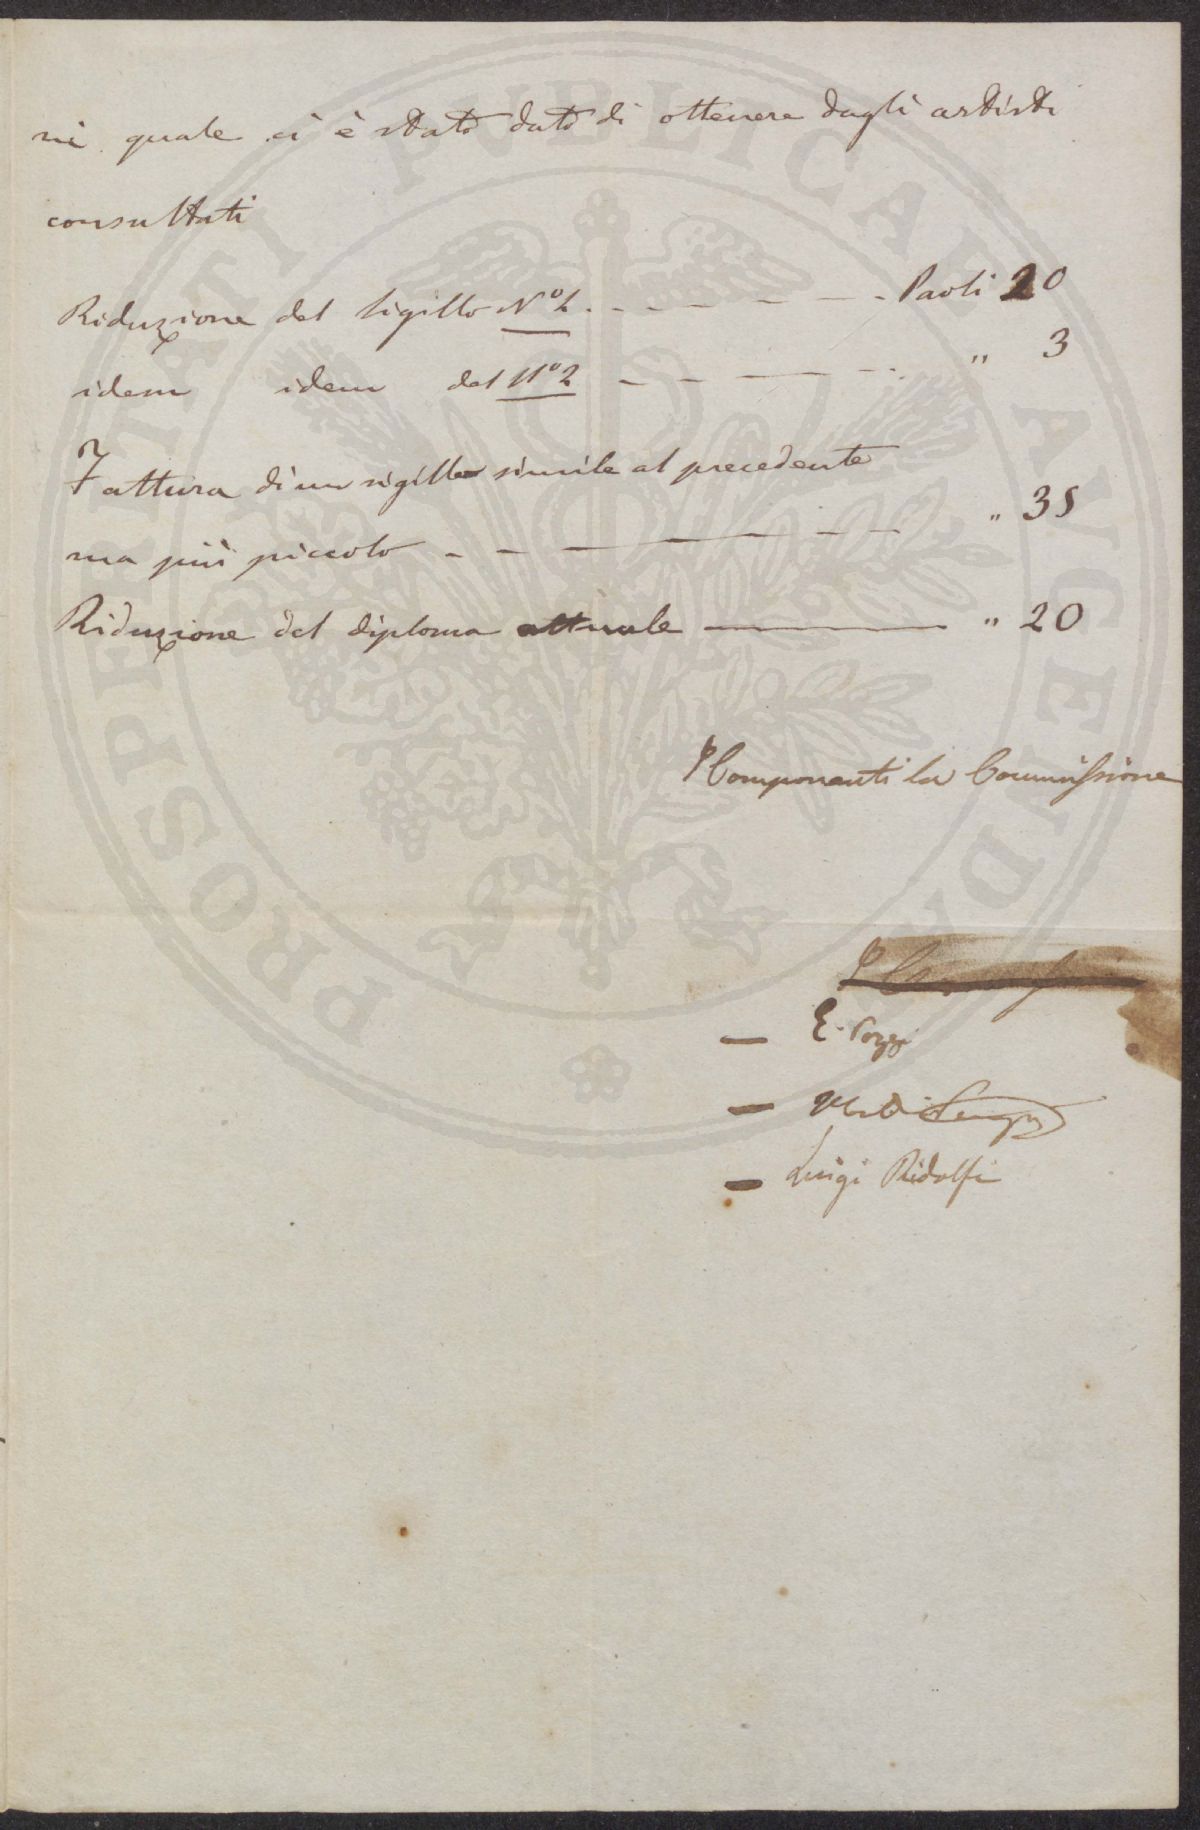 ni quale ci è stato dato di ottenere dagli artisti
consultati
Riduzione del sigillo Nº 1 . - - - - - - - Paoli 20
idem idem del Nº 2 - - - - - " 3
Fattura di un sigillo simile al precedente
ma più piccolo - - - - - - " 35
Riduzione del diploma attuale — " 20
I Componenti la Commissione
— E. Pozzi
—
— Luigi Ridolfi
PROSPERITATI PUBLICAE AVGENDAE